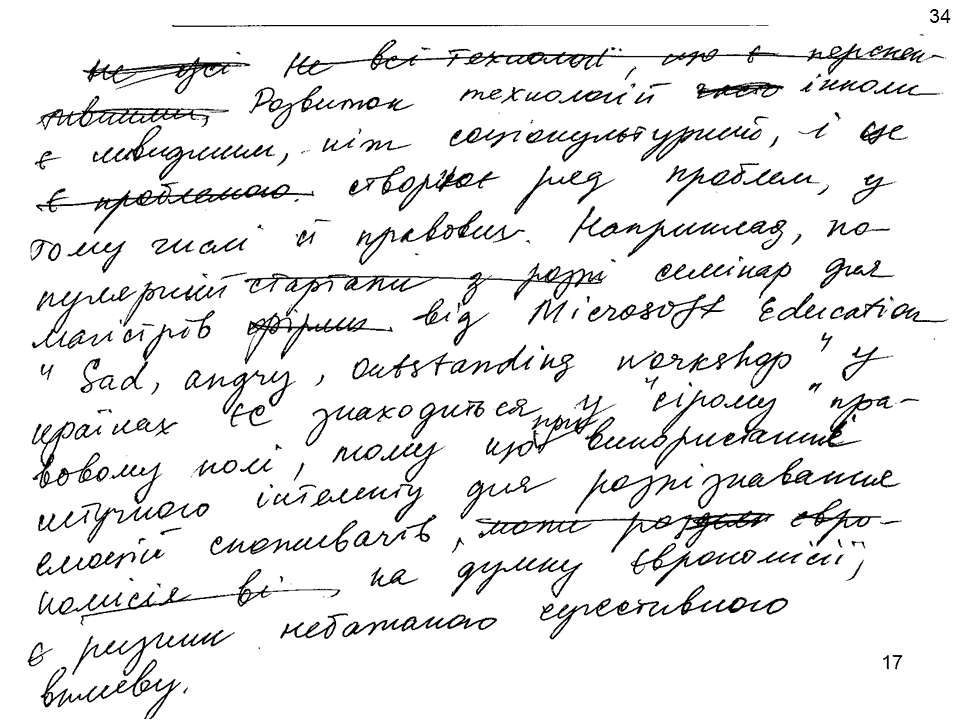 34
не усі не всі технології, що є перспек-
тивними, Розвиток технологій часто інколи
є швидшим, ніж соціокультурний, і це
є проблемою. створює ряд проблем, у
тому числі й правових. Наприклад, по-
пулярний стартапи з розпі семінар для
магістрів фірми від Microsoft Education
"Sad, angry, outstanding workshop" у
країнах ЄС знаходиться у "сірому" пра-
вовому полі, тому що при використанні
штучного інтелекту для розпізнавання
емоцій споживачів, євро-
комісія ві на думку Єврокомісії,
є ризик небажаного сугестивного
впливу.
17